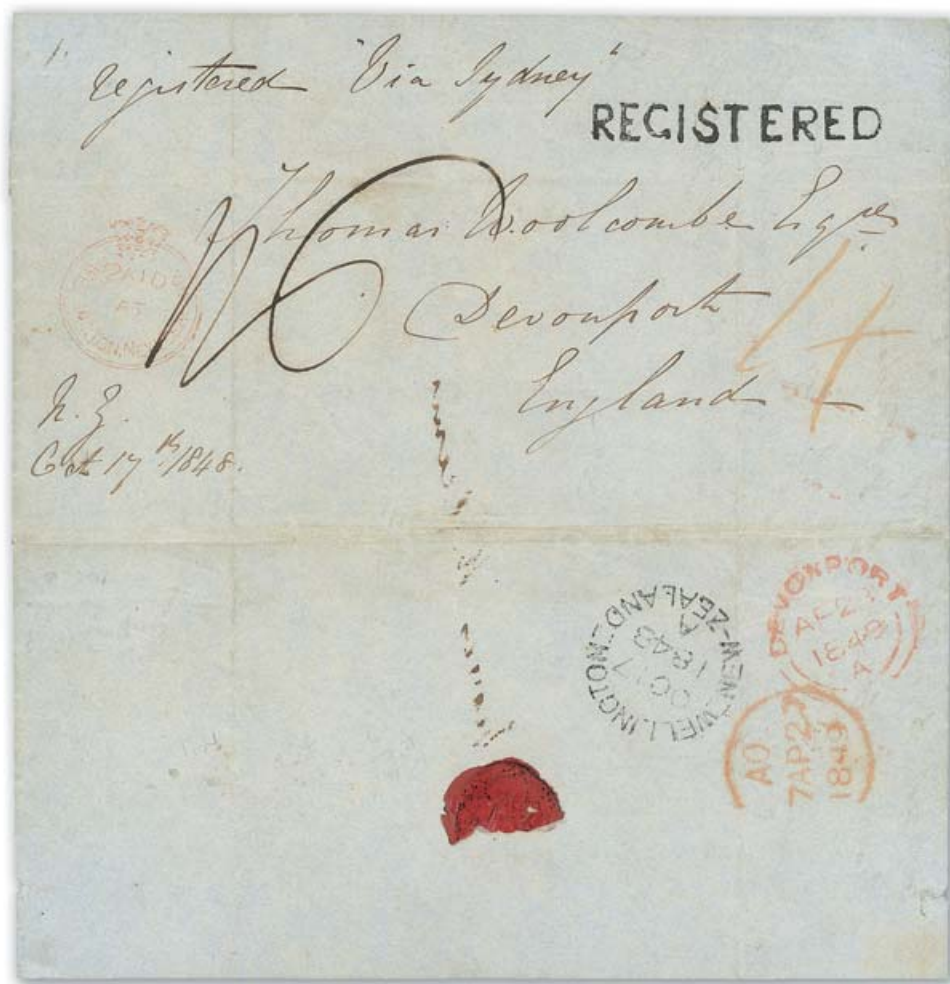 registered "Via Sydney"
REGISTERED
Thomas Woolcombe Esqre
Devonport
England
16
4
PAID
AT
N.Z.
Oct 17th 1848.
WELLINGTON
NEW-ZEALAND
A
OC 17
1848
DEVONPORT
1849
A
AO
7AP27
1849